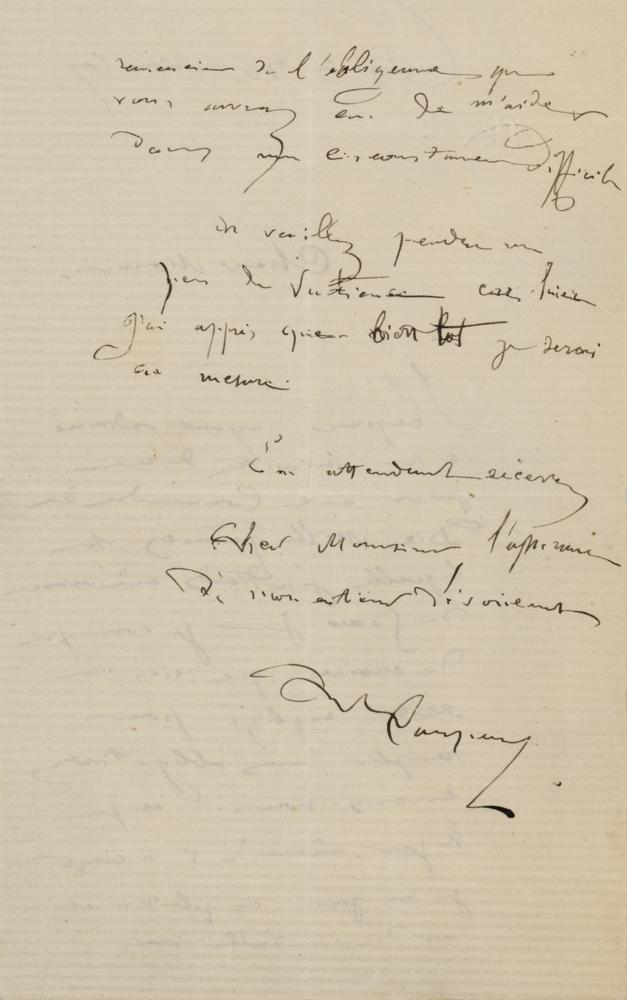 remercier de l'obligeance que
vous avez eu de m'aider
dans une circonstance difficile
veuillez prendre un
peu de patience car hier
j'ai appris que bientôt je serai
en mesure
En attendant recevez
Cher Monsieur l'expression
De mon entier dévouement